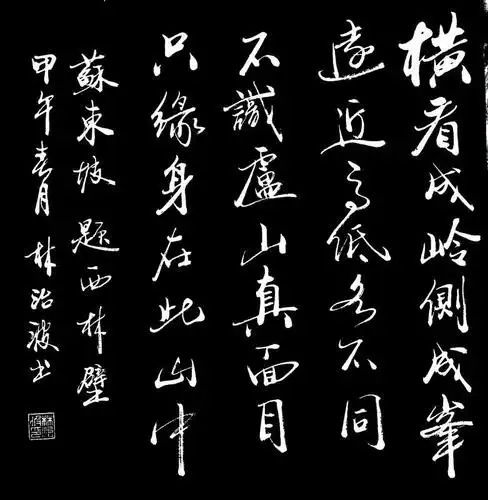 橫看成岭側成峯
遠近高低各不同
不識廬山真面目
只緣身在此山中
蘇東坡題西林壁
甲午春月林治波书